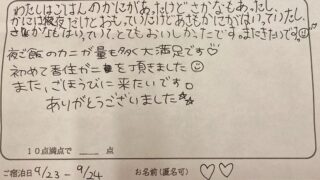 わたしはごはんのかにがあったけどさかなもあったし、
かには夜だけとおもっていたけどあさもかにがはいっていたし、
さかなもはいっていてとてもおいしかったです。またきたいです。
夜ご飯のカニが量も多く大満足です♡
初めて香住ガニを頂きました☺
また、さほうびに来たいです。
ありがとうございました☆☆
10点満点で ____ 点
ご宿泊日 9/23 - 9/24 お名前(匿名可) ♡♡